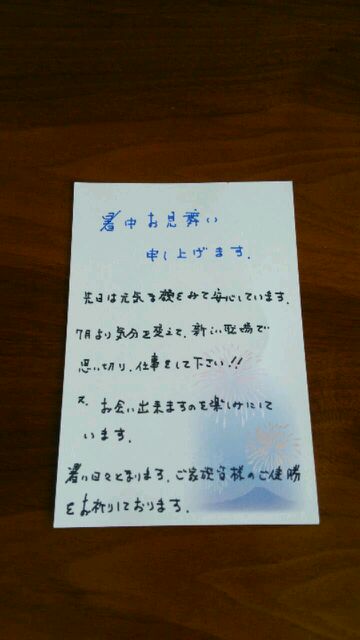 暑中お見舞い
申し上げます.
先日は元気な顔をみて安心しています.
7月より気分を変えて.新しい職場で
思い切り.仕事をして下さい!!
又.お会い出来ますのを楽しみにて
います.
暑い日々となります.ご家族皆様のご健勝
をお祈りしております.